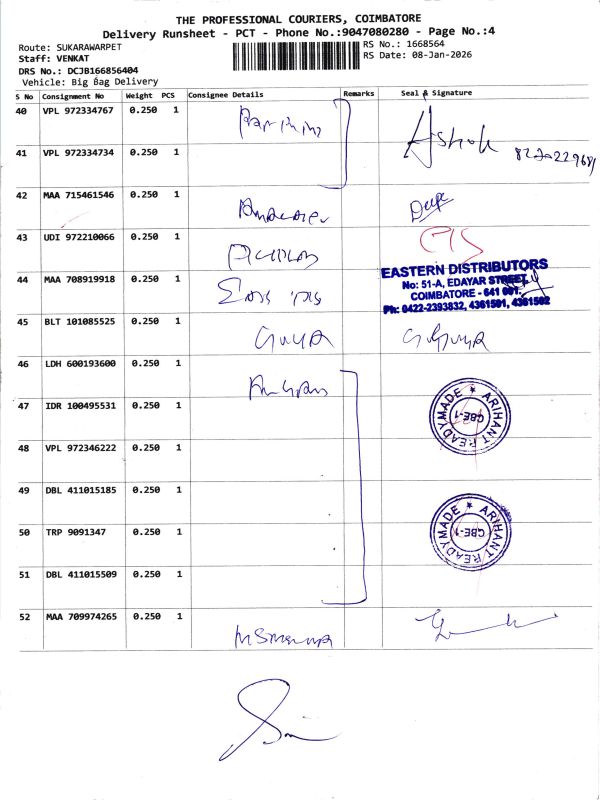 THE PROFESSIONAL COURIERS, COIMBATORE
Delivery Runsheet - PCT - Phone No.:9047080280 - Page No.:4
Route: SUKARAWARPET
Staff: VENKAT
DRS No.: DCJB166856404
Vehicle: Big Bag Delivery
RS No.: 1668564
RS Date: 08-Jan-2026
S No Consignment No Weight PCS Consignee Details Remarks Seal & Signature
40 VPL 972334767 0.250 1
Ashok
41 VPL 972334734 0.250 1
42 MAA 715461546 0.250 1
43 UDI 972210066 0.250 1
44 MAA 708919918 0.250 1
EASTERN DISTRIBUTORS
No: 51-A, EDAYAR STREET,
COIMBATORE - 641 001.
Ph: 0422-2393832, 4361501, 4361502
45 BLT 101085525 0.250 1
46 LDH 600193600 0.250 1
47 IDR 100495531 0.250 1
ARIHANT READYMADE ★
CBE-1
48 VPL 972346222 0.250 1
49 DBL 411015185 0.250 1
50 TRP 9091347 0.250 1
ARIHANT READYMADE ★
CBE-1
51 DBL 411015509 0.250 1
52 MAA 709974265 0.250 1